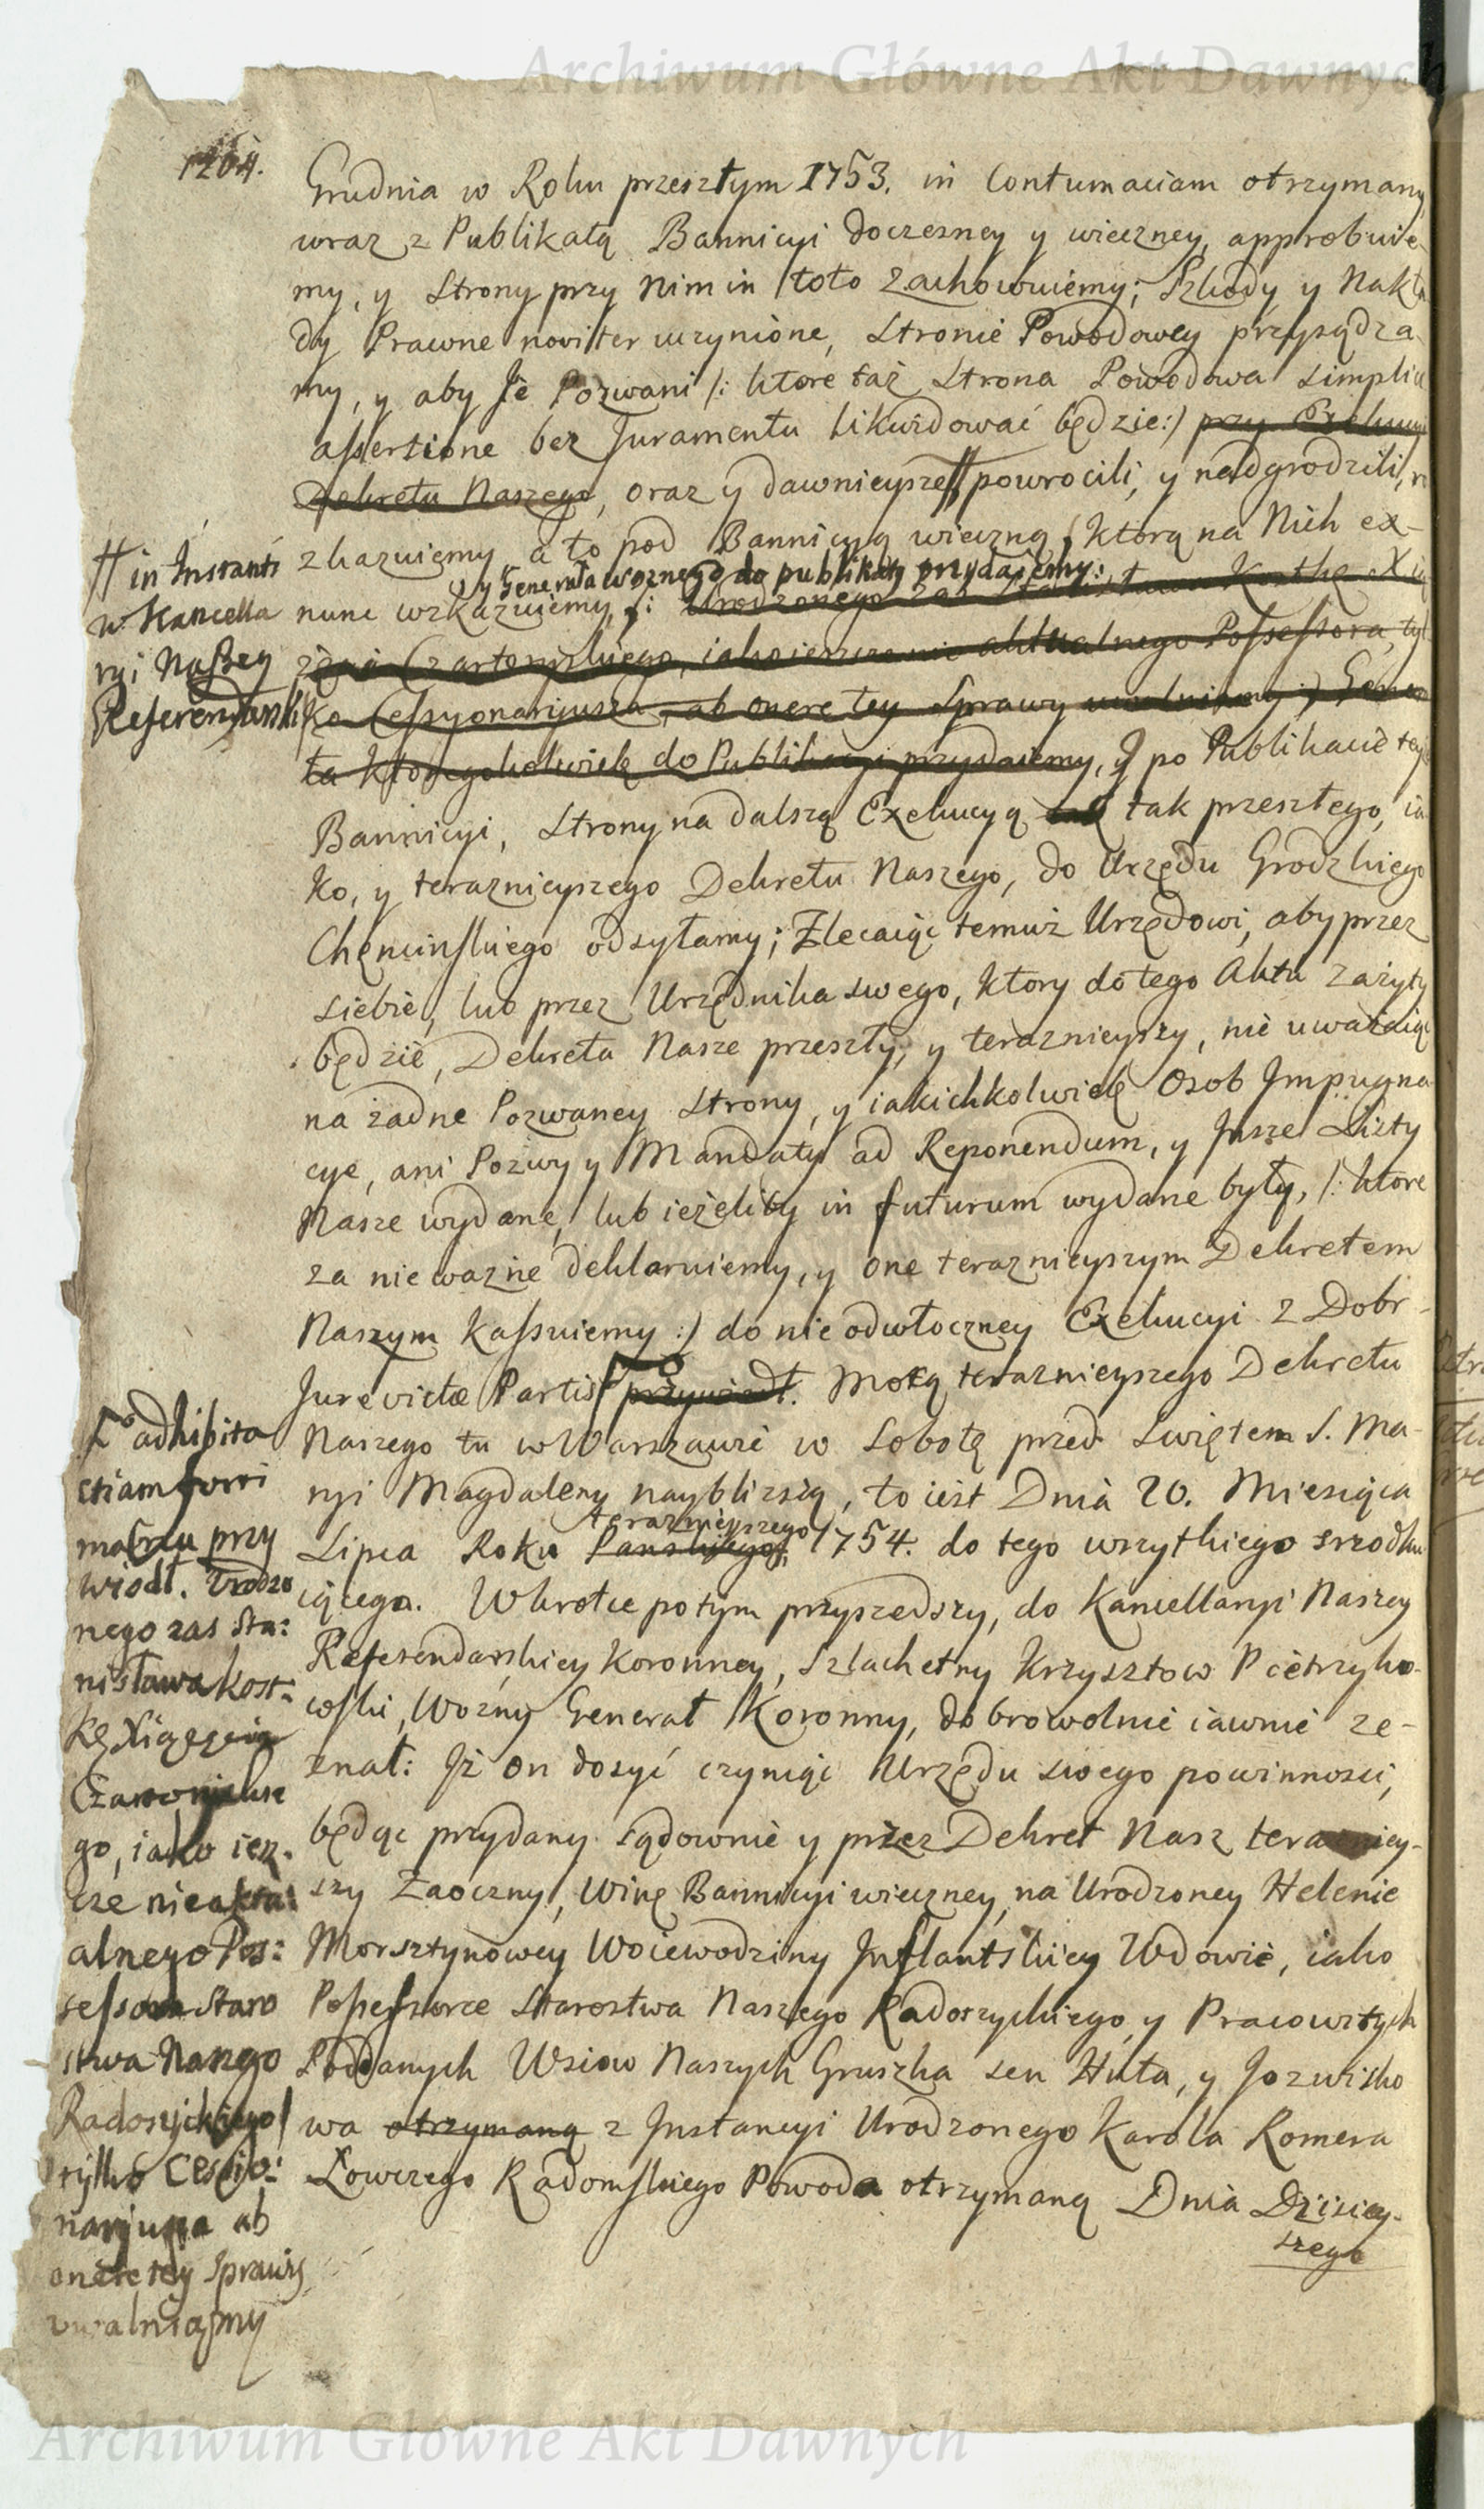 Archiwum Główne Akt Dawnych
1204.
Grudnia w Roku przeszłym 1753. in Contumaciam otrzymany,
wraz z Publikatą Bannicyi doczesney y wieczney, approbuie-
my, y Strony przy nim in toto zachowuiemy; Szkody y Nakła
dy Prawne noviter uczynione, Stronie Powodowey przysądza-
my, y aby Je Pozwani /: ktore taż Strona Powodowa simplici
assertione bez Juramentu likwidować będzie:/ przy Exekucyi
Dekretu Naszego, oraz y dawnieysze // powrocili, y nadgrodzili,
zkazuiemy, a to pod Bannicyą wieczną, ktorą na Nich ex-
y Generała woznego do publikaty przydaiemy:
nunc wzkazuiemy, /: Urodzonego zaś Stanisława Kostkę Xią
żęcia Czartoryskiego, iako ieszcze nie aktualnego Possessora, tyl
ko Cessyonaryusza, ab onere tey Sprawy uwalniamy :/ Gene
ła ktoregokolwiek do Publikacyi przydaiemy, y po Publikacie tey
Bannicyi, Strony na dalszą Exekucyą tak przeszłego, ia
ko, y teraznieyszego Dekretu Naszego, do Urzędu Grodzkiego
Chęcinskiego odsyłamy; Zlecaiąc temuż Urzędowi, aby przez
siebie, lub przez Urzędnika swego, ktory do tego Aktu zażyty
będzie, Dekreta Nasze przeszły, y teraznieyszy, nie uważaiąc
na żadne Pozwaney Strony, y iakichkolwiek Osob Impugna
cye, ani Pozwy y Mandaty ad Reponendum, y Insze Listy
Nasze wydane, lub ieżeliby in futurum wydane były, /: ktore
za nie ważne deklaruiemy, y one teraznieyszym Dekretem
Naszym kassuiemy :/ do nie odwłoczney Exekucyi z Dobr
Jure victæ Partis przywiodł. Mocą teraznieyszego Dekretu
Naszego tu w Warszawie w Sobotę przed Swiętem S. Ma-
ryi Magdaleny nayblizszą, to iest Dnia 20. Miesiąca
teraznieyszego
Lipca Roku Panskiego, 1754. do tego wszytkiego srzodku
iącego. Wkrotce potym przyszedszy, do Kancellaryi Naszey
Referendarskiey Koronney, Szlachetny Krzysztow Pietrzyko-
wski, Woźny Generał Koronny, dobrowolnie iawnie ze-
znał: Iż on dosyć czyniąc Urzędu swego powinności,
będąc przydany sądownie y przez Dekret Nasz terazniey-
szy Zaoczny, Winę Bannicyi wieczney, na Urodzoney Helenie
Morsztynowey Woiewodziny Inflantskiey Wdowie, iako
Possessorce Starostwa Naszego Radoszyckiego, y Pracowitych
Poddanych Wsiow Naszych Gruszka seu Huta, y Jozwisko
wa otrzymaną z Instancyi Urodzonego Karola Romera
Łowczego Radomskiego Powoda otrzymaną Dnia Dzisiey-
szego
// in Instanti
w Kancella
ryi Naszey
Referendarski
adhibita
etiam forti
manu przy
wiodł. Urodzo
nego zas Sta:
nisława Kost:
kę Xiążęcia
Czartoryskie
go, iako iesz-
cze nieaktu
alnego Pos:
sessora Staro
stwa Naszego
Radoszyckiego/
tylko Cessio:
naryusza ab
onere tey sprawy
uwalniamy
Archiwum Główne Akt Dawnych